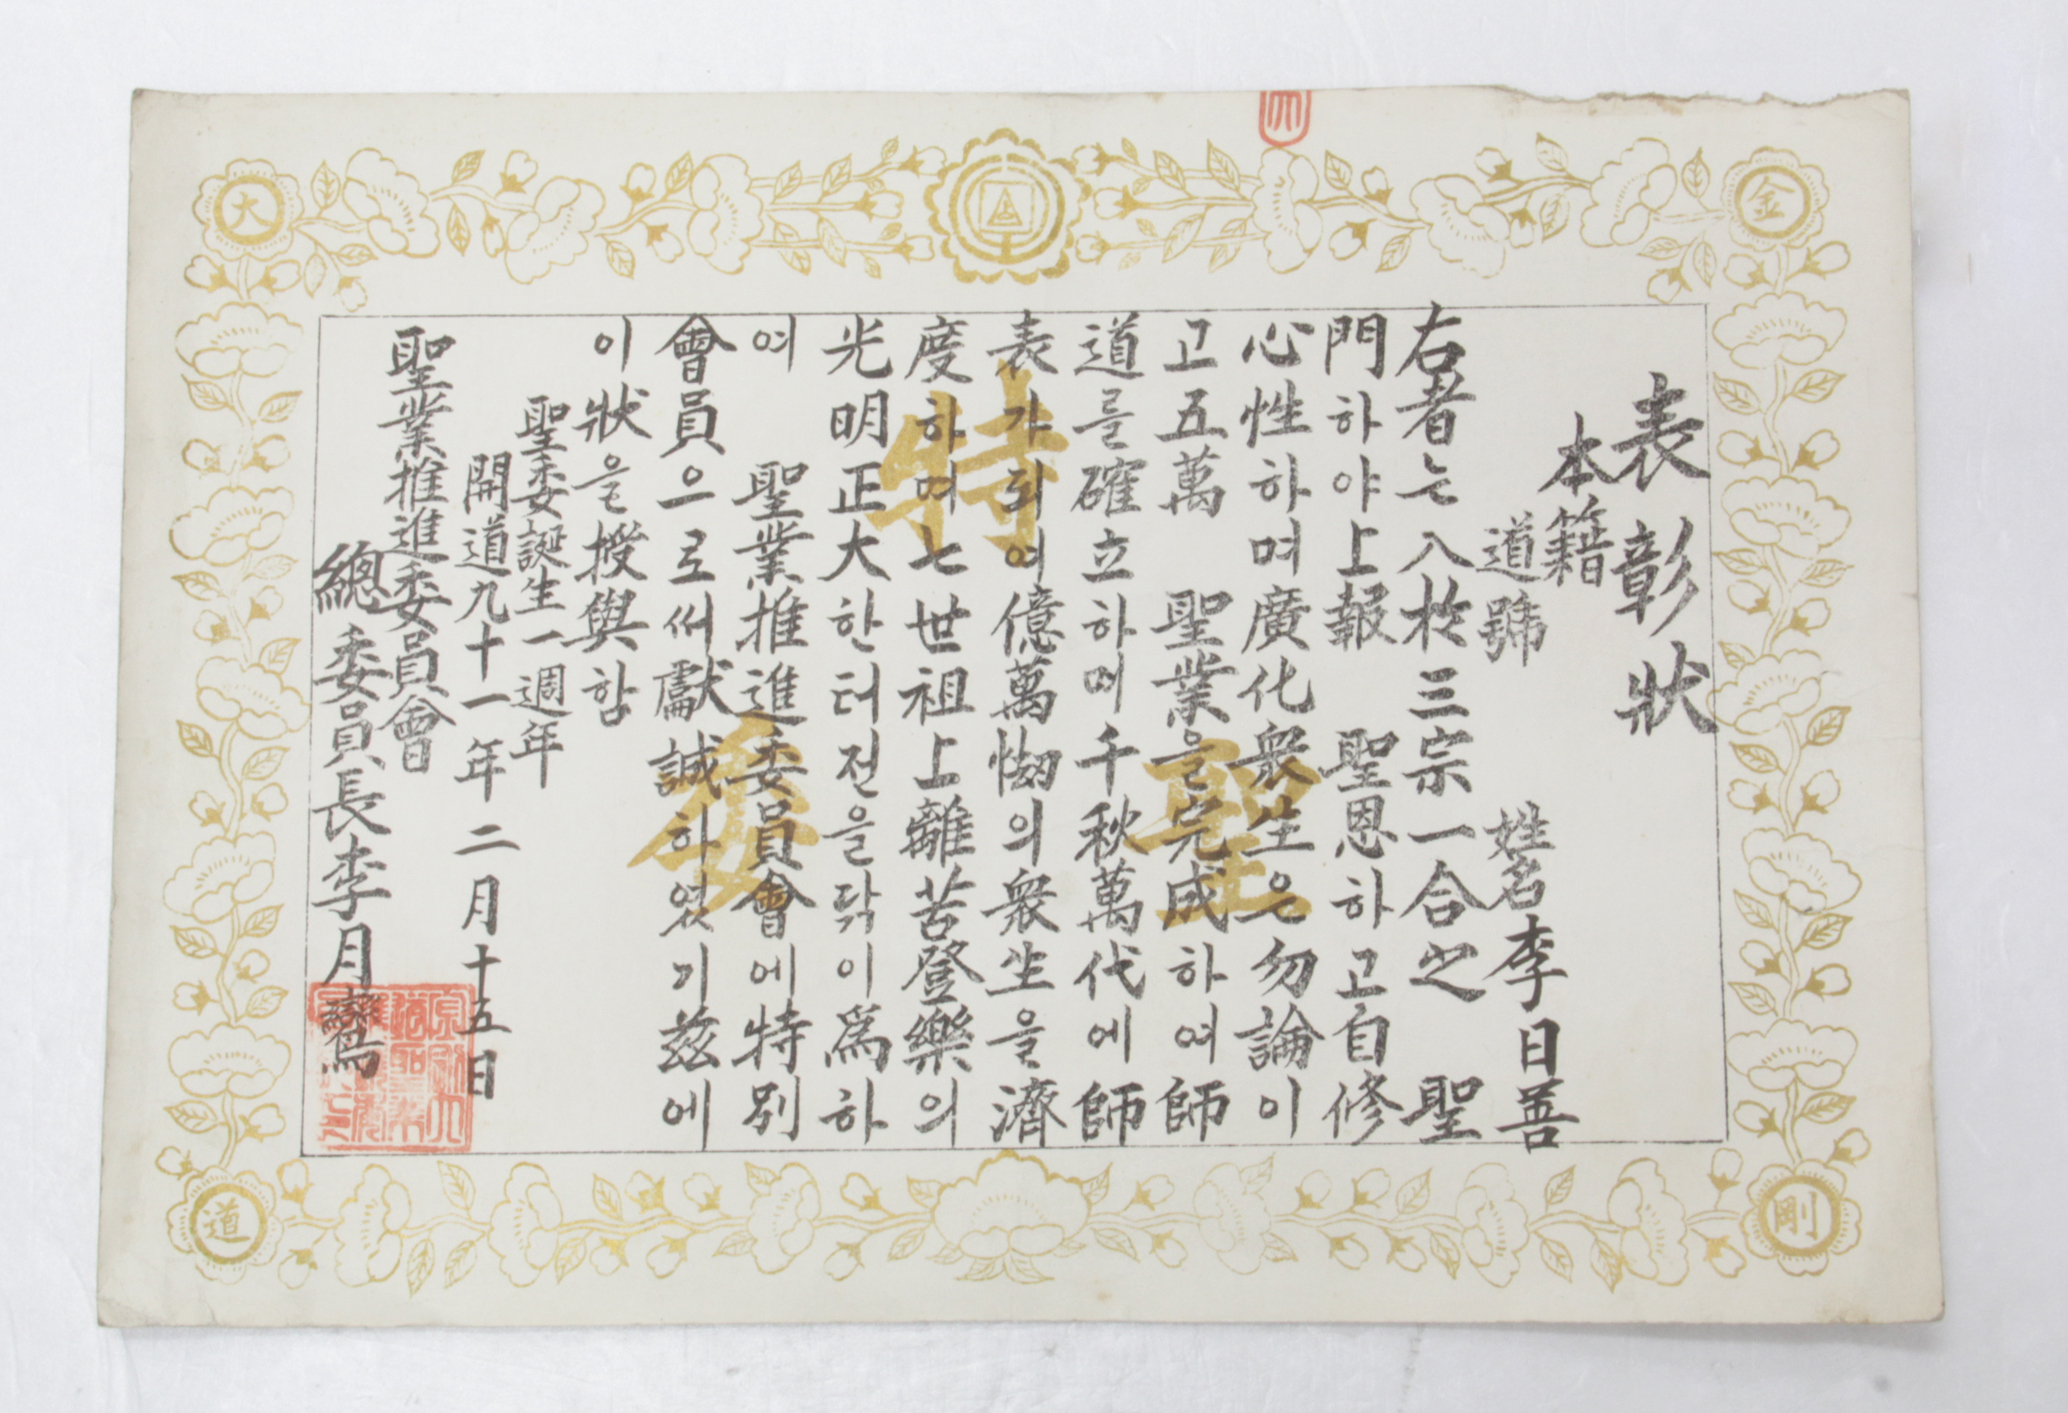 表彰狀
本籍
道號 姓名 李日善
右者는入於三宗一合之 聖
門하야上報 聖恩하고自修
心性하며廣化衆生은勿論이
고五萬 聖業을完成하여師
道를確立하며千秋萬代에師
表가되여億萬 의衆生을濟
度하며七世祖上離苦登樂의
光明正大한터전을닦이爲하
여 聖業推進委員會에特別
會員으로써獻誠하였기玆에
이狀을授與함
聖委誕生一週年
開道九十一年二月十五日
聖業推進委員會
總委員長李月鸞
特
聖
委
大
金
道
剛